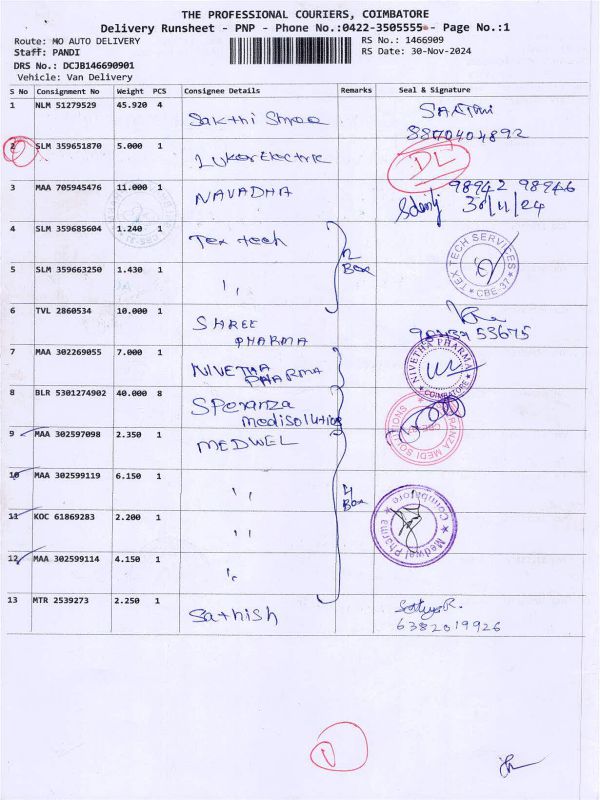 THE PROFESSIONAL COURIERS, COIMBATORE
Delivery Runsheet - PNP - Phone No.:0422-3505555 - Page No.:1
Route: MO AUTO DELIVERY
RS No.: 1466909
Staff: PANDI
RS Date: 30-Nov-2024
DRS No.: DCJB146690901
Vehicle: Van Delivery
S No Consignment No Weight PCS Consignee Details Remarks Seal & Signature
1 NLM 51279529 45.920 4 Sakthi Shree
8870404892
2 SLM 359651870 5.000 1 Luker Electric DL
3 MAA 705945476 11.000 1 NAVADHA 98942 98946
30/11/24
4 SLM 359685604 1.240 1 Tex tech 2 Box
TEX TECH SERVICES CBE-37
5 SLM 359663250 1.430 1 ,,
6 TVL 2860534 10.000 1 SHREE PHARMA
53675
7 MAA 302269055 7.000 1 NIVETHA PHARMA
NIVETHA PHARMA COIMBATORE
8 BLR 5301274902 40.000 8 Speranza medisolutios
RANZA MEDI SOLUTIONS
9 MAA 302597098 2.350 1 MEDWEL
10 MAA 302599119 6.150 1 ,, 4 Box
11 KOC 61869283 2.200 1 ,,
Medwel Pharma Coimbatore
12 MAA 302599114 4.150 1 ,,
13 MTR 2539273 2.250 1 Sathish
6382019926